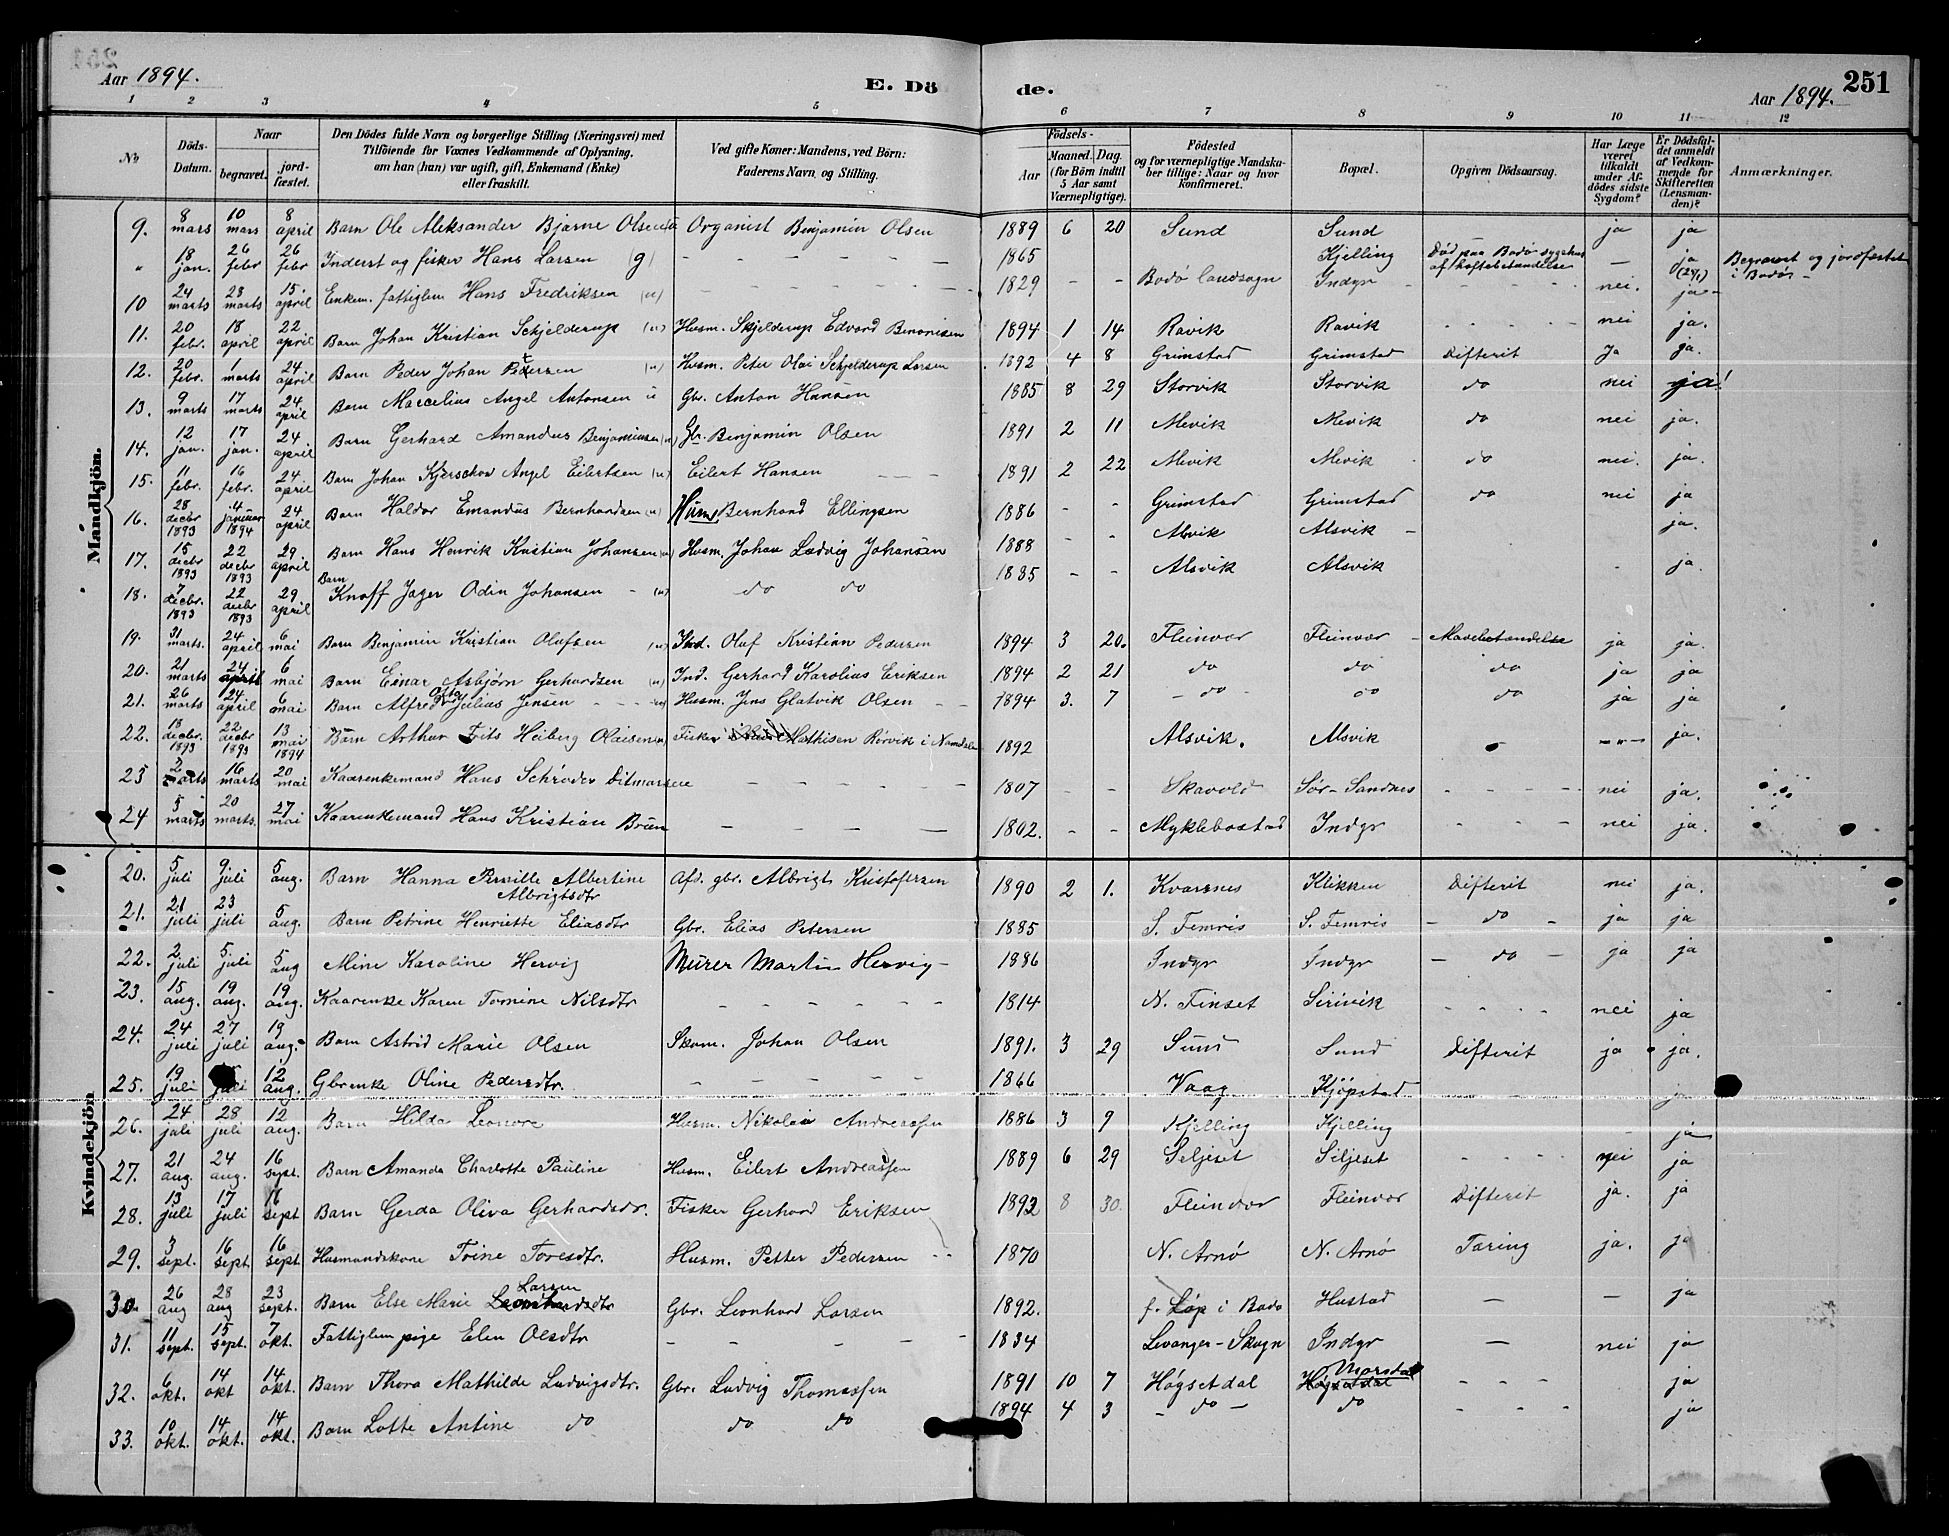 Aar 1894. E. Döde. Aar 1894. 251
1 2 3 4 5 6 7 8 9 10 11 12
No
Döds-Datum.
Naar
begravet.
jordfæstet.
Den Dödes fulde Navn og borgerlige Stilling (Næringsvei) med
Tilföiende for Voxnes Vedkommende af Oplysning,
om han (hun) var ugift, gift, Enkemand (Enke)
eller fraskilt.
Ved gifte Koner: Mandens, ved Börn:
Faderens Navn og Stilling.
Födsels-
Aar
Maaned. Dag.
(for Börn indtil
5 Aar samt
Værnepligtige).
Födested
og for værnepligtige Mandskaber tillige: Naar og hvor
konfirmeret.
Bopæl.
Opgiven Dödsaarsag.
Har Læge
været
tilkaldt
under Afdödes sidste
Sygdom?
Er Dödsfaldet anmeldt
af Vedkommende for
Skifteretten
(Lensmanden)?
Anmærkninger.
Mandkjön.
9. 8 mars 10 mars 8 april Barn Ole Aleksander Bjarne Olsen Organist Benjamin Olsen 1889 6 20 Sund Sund ja ja
" 18 jan. 26 febr 26 febr Inderst og fisker Hans Larsen (g) 1865 Kjelling Död paa Bodö sygehus af hoftebetændelse — ja Begravet og jordfæstet i Bodö -
10 24 marts 28 marts 15. april Enkem. fattiglem Hans Fredriksen 1829 - - Bodö landsogn Indyr nei. ja
11. 20 febr. 18 april 22 april Barn Johan Kristian Schjelderup (u) Husm. Skjelderup Edvard Benonisen 1894 1 14 Ravik Ravik nei ja.
12. 20 febr. 1 marts 24 april Barn Peder Johan Petersen (u) Husm. Peter Olai Schjelderup Larsen 1892 4 8 Grimstad Grimstad Difterit Ja ja.
13. 9 marts 17 marts 24 april Barn Marcelius Angel Antonsen u Gbr. Anton Hansen 1885 8 29 Storvik Storvik do nei ja!
14. 12 jan. 17 jan. 24 april Barn Gerhard Amandus Benjaminsen (u) Gbr. Benjamin Olsen 1891 2 11 Mevik Mevik do nei ja.
15. 11 febr. 16 febr. 24 april Barn Johan Kjerschow Angel Eilertsen (u) Eilert Hansen 1891 2 22 Mevik Mevik do nei. ja.
16. 28 decbr 1893 4 januar 1894 24 april Barn Haldor Emandus Bernhardsen (u) Husm Bernhard Ellingsen 1886 - - Grimstad Grimstad do nei ja
17. 15 decbr 1893 22 decbr 1893 29 april Barn Hans Henrik Kristian Johansen (u) Husm. Johan Ludvig Johansen 1888 - - Alsvik Alsvik - ja.
18. 7 decbr. 1893 22 decbr 1893 29 april Barn Knoff Jager Odin Johansen - (u) do do 1885 - - Alsvik Alsvik ja.
19. 31 marts. 24 april 6 mai Barn Benjamin Kristian Olufsen (u) Ind. Oluf Kristian Pedersen 1894 3 20. Fleinvær Fleinvær - Mavebetændelse ja ja.
20. 21 marts 24 april 6 mai Barn Einar Asbjörn Gerhardsen (u) Ind. Gerhard Karolius Eriksen 1894 2 21 do do do ja ja
21. 26 marts 24 april 6 mai Barn Alfred Julius Jensen Husm. Jens Glatvik Olsen - - 1894 3. 7 - do - do do ja ja
22. 18 decbr. 1893 22 decbr 1893 13 mai 1894 Barn Arthur Frits Heiberg Olaisen Fisker Mathisen Rörvik i Namdalen 1892 Alsvik. Alsvik - --- ja.
23 2 marts 16 marts 20 mai Kaarenkemand Hans Schröder Ditmarsen 1807 - - Skavold Sör-Sandnes nei ja.
24 5 marts 20 marts. 27 mai Kaarenkemand Hans Kristian Bruun 1802. - - Myklebostad Indyr nei ja.
Kvindekjön
20. 5 juli 9 juli 5 aug. Barn Hanna Pernille Albertine Albrigtsdtr Afd. gbr. Albrigt Kristofersen 1890 2 1. Kvarsnes Klikken Difterit nei ja.
21. 21 juli 23 juli 5 aug. Barn Petrine Henriette Eliasdtr Gbr. Elias Petersen 1885 S. Femris S. Femris - do - ja ja
22. 2 juli 5 juli 5 aug Mine Karoline Hervig Murer Martin Hervig 1886 Indyr Indyr - do - ja ja
23. 15 aug. 19 aug. 19 aug. Kaarenke Karen Tomine Nilsdtr 1814 N. Finset Sirivik nei ja
24. 24 juli 27 juli 19 aug. Barn Astrid Marie Olsen Skom. Johan Olsen 1891. 3 29 Sund Sund Difterit ja ja.
25. 19 juli juli 12 aug. Gbrenke Oline Pedersdtr. 1866 Vaag Kjöpstad ja
26. 24 juli 28 juli 12 aug. Barn Hilda Leonore Husm. Nikolai Andreassen 1886 3 9 Kjelling Kjelling - ja
27. 21 aug. 24 aug. 16 sept. Barn Amanda Charlotte Pauline Husm. Eilert Andreassen 1889 6 29 Seljeset Seljeset nei ja
28. 13 juli 17 juli 16 sept Barn Gerda Oliva Gerhardsdr. Fisker Gerhard Eriksen 1892 8 30. Fleinvær Fleinvær Difterit ja. ja
29. 3 sept. 16 sept 16 sept Husmandskone Trine Toresdtr. Husm. Petter Pedersen 1870 N. Arnö N. Arnö Tæring ja. ja
30. 26 aug 28 aug 23 sept. Barn Else Marie Leonhardsdtr Larsen Gbr. Leonhard Larsen 1892. f. Löp i Bodö Hustad — — ja
31. 11 sept. 15 sept. 7 okt. Fattiglem pige Elen Olsdtr 1834 Levanger-Skogn Indyr — nei ja
32. 6 okt. 14 okt 14 okt. Barn Thora Mathilde Ludvigsdtr. Gbr. Ludvig Thomassen 1891 10 7 Högsetdal Högsetdal Morsdal ja
33. 10 okt. 14 okt. 14 okt. Barn Lotte Antine do do do 1894 4 3 - do - do ja